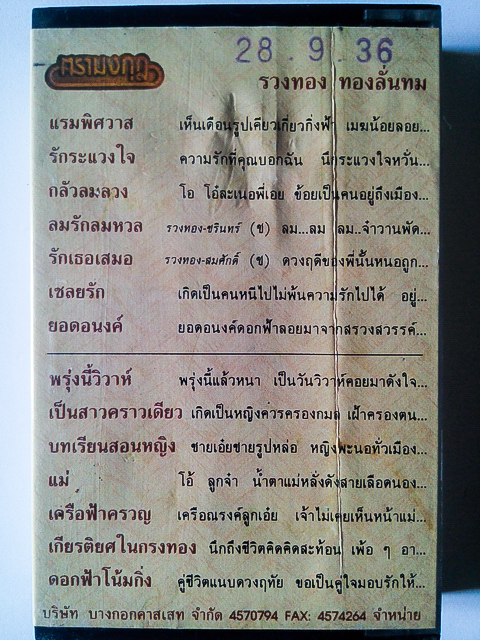 28.9.36
ตรามงกุฎ
รวงทอง ทองลั่นทม
แรมพิศวาส เห็นเดือนรูปเคียวเกี่ยวกิ่งฟ้า เมฆน้อยลอย...
รักระแวงใจ ความรักที่คุณบอกฉัน นึกระแวงใจหวั่น...
กลัวลมลวง โอ โอ๋ละเนอพี่เอย ข้อยเป็นคนอยู่ถึงเมือง...
ลมรักลมหวล รวงทอง-ชรินทร์ (ช) ลม...ลม ลม..จ๋าวานพัด...
รักเธอเสมอ รวงทอง-สมศักดิ์ (ช) ดวงฤดีของพี่นั้นหนอถูก...
เชลยรัก เกิดเป็นคนหนีไปไม่พ้นความรักไปได้ อยู่...
ยอดอนงค์ ยอดอนงค์ดอกฟ้าลอยมาจากสรวงสวรรค์...
พรุ่งนี้วิวาห์ พรุ่งนี้แล้วหนา เป็นวันวิวาห์คอยมาดังใจ...
เป็นสาวคราวเดียว เกิดเป็นหญิงควรครองกมล เฝ้าครองตน...
บทเรียนสอนหญิง ชายเอ๋ยชายรูปหล่อ หญิงพะนอทั่วเมือง...
แม่ โอ้ ลูกจ๋า น้ำตาแม่หลั่งดังสายเลือดนอง...
เครือฟ้าครวญ เครือณรงค์ลูกเอ๋ย เจ้าไม่เคยเห็นหน้าแม่...
เกียรติยศในกรงทอง นึกถึงชีวิตคิดคิดสะท้อน เพ้อ ๆ อา...
ดอกฟ้าโน้มกิ่ง คู่ชีวิตแนบดวงฤทัย ขอเป็นคู่ใจมอบรักให้...
บริษัท บางกอกคาสเสท จำกัด 4570794 FAX: 4574264 จำหน่าย